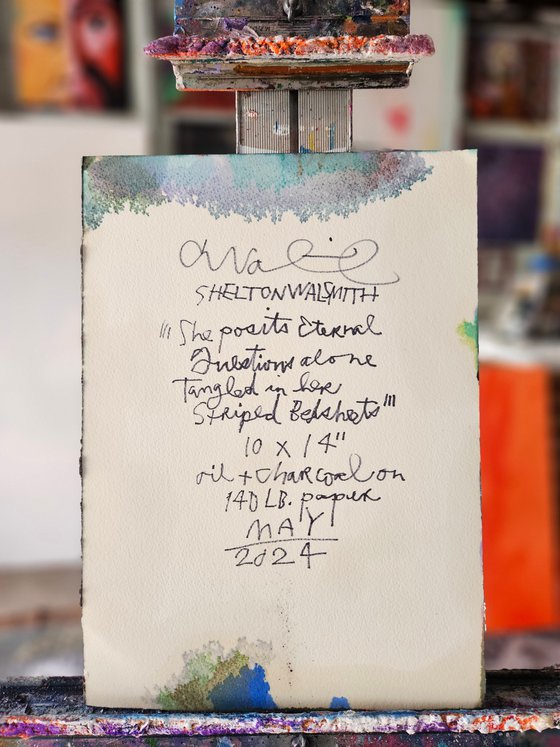 SHELTONWALSMITH
"'She posits Eternal
Questions alone
Tangled in her
Striped Bedsheets"'
10 x 14"
oil + charcoal on
140 LB. paper
MAY
2024